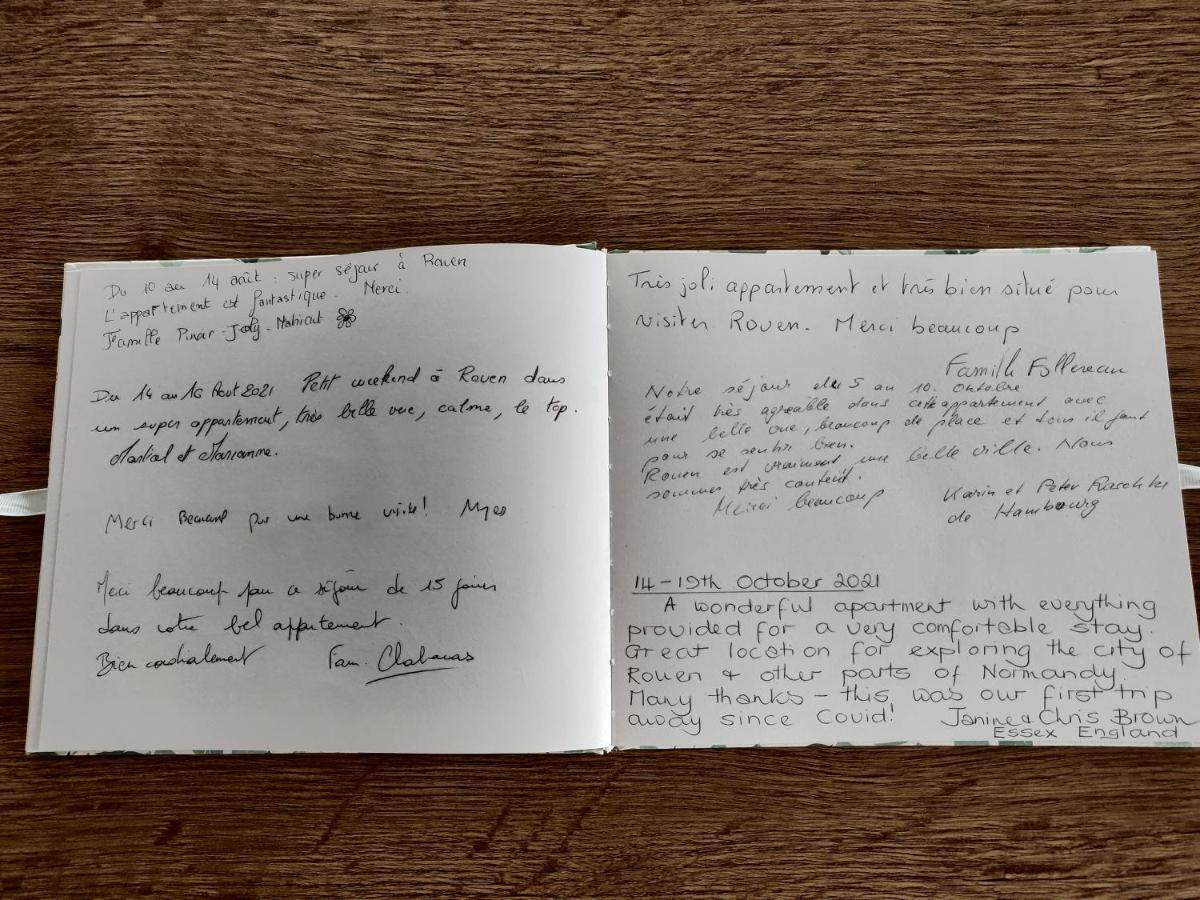 Du 10 au 14 août : super séjour à Rouen
L'appartement est fantastique. Merci.
Famille Pinar-Joly-Mahieut
Du 14 au 16 Aout 2021 Petit weekend à Rouen dans
un super appartement, très belle vue, calme, le top.
Martial et Marianne.
Merci Beaucoup pour une bonne visite!
Merci beaucoup pour ce séjour de 15 jours
dans votre bel appartement.
Bien cordialement Fam.
Très joli appartement et très bien situé pour
visiter Rouen. Merci beaucoup
Famille Follereau
Notre séjour du 5 au 10. Octobre
était très agréable dans cette appartement avec
une belle vue, beaucoup de place et tous il faut
pour se sentir bien.
Rouen est vraiment une belle ville. Nous
sommes très content.
Merci beaucoup
Karin et Peter
de Hambourg
14-19th October 2021
A wonderful apartment with everything
provided for a very comfortable stay.
Great location for exploring the city of
Rouen & other parts of Normandy.
Many thanks - this was our first trip
away since Covid! Janine & Chris Brown
Essex England